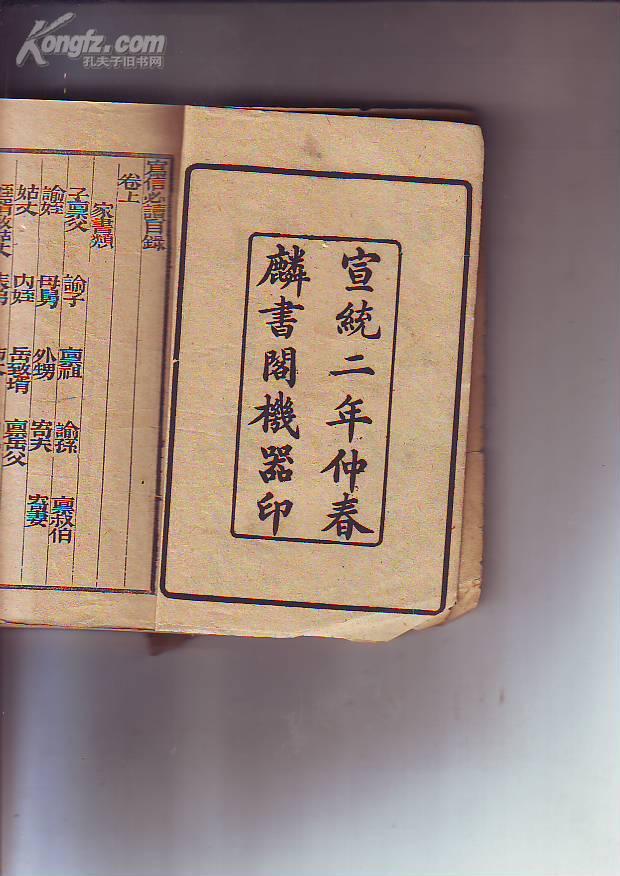 Kongfz.com
孔夫子旧书网
宣統二年仲春
麟書閣機器印
寫信必讀目錄
卷上
家書類
子稟父 諭子 稟祖 諭孫 稟叔伯
諭姪 母舅 外甥 寄夫 寄妻
姑丈 内姪 岳致壻 稟岳父